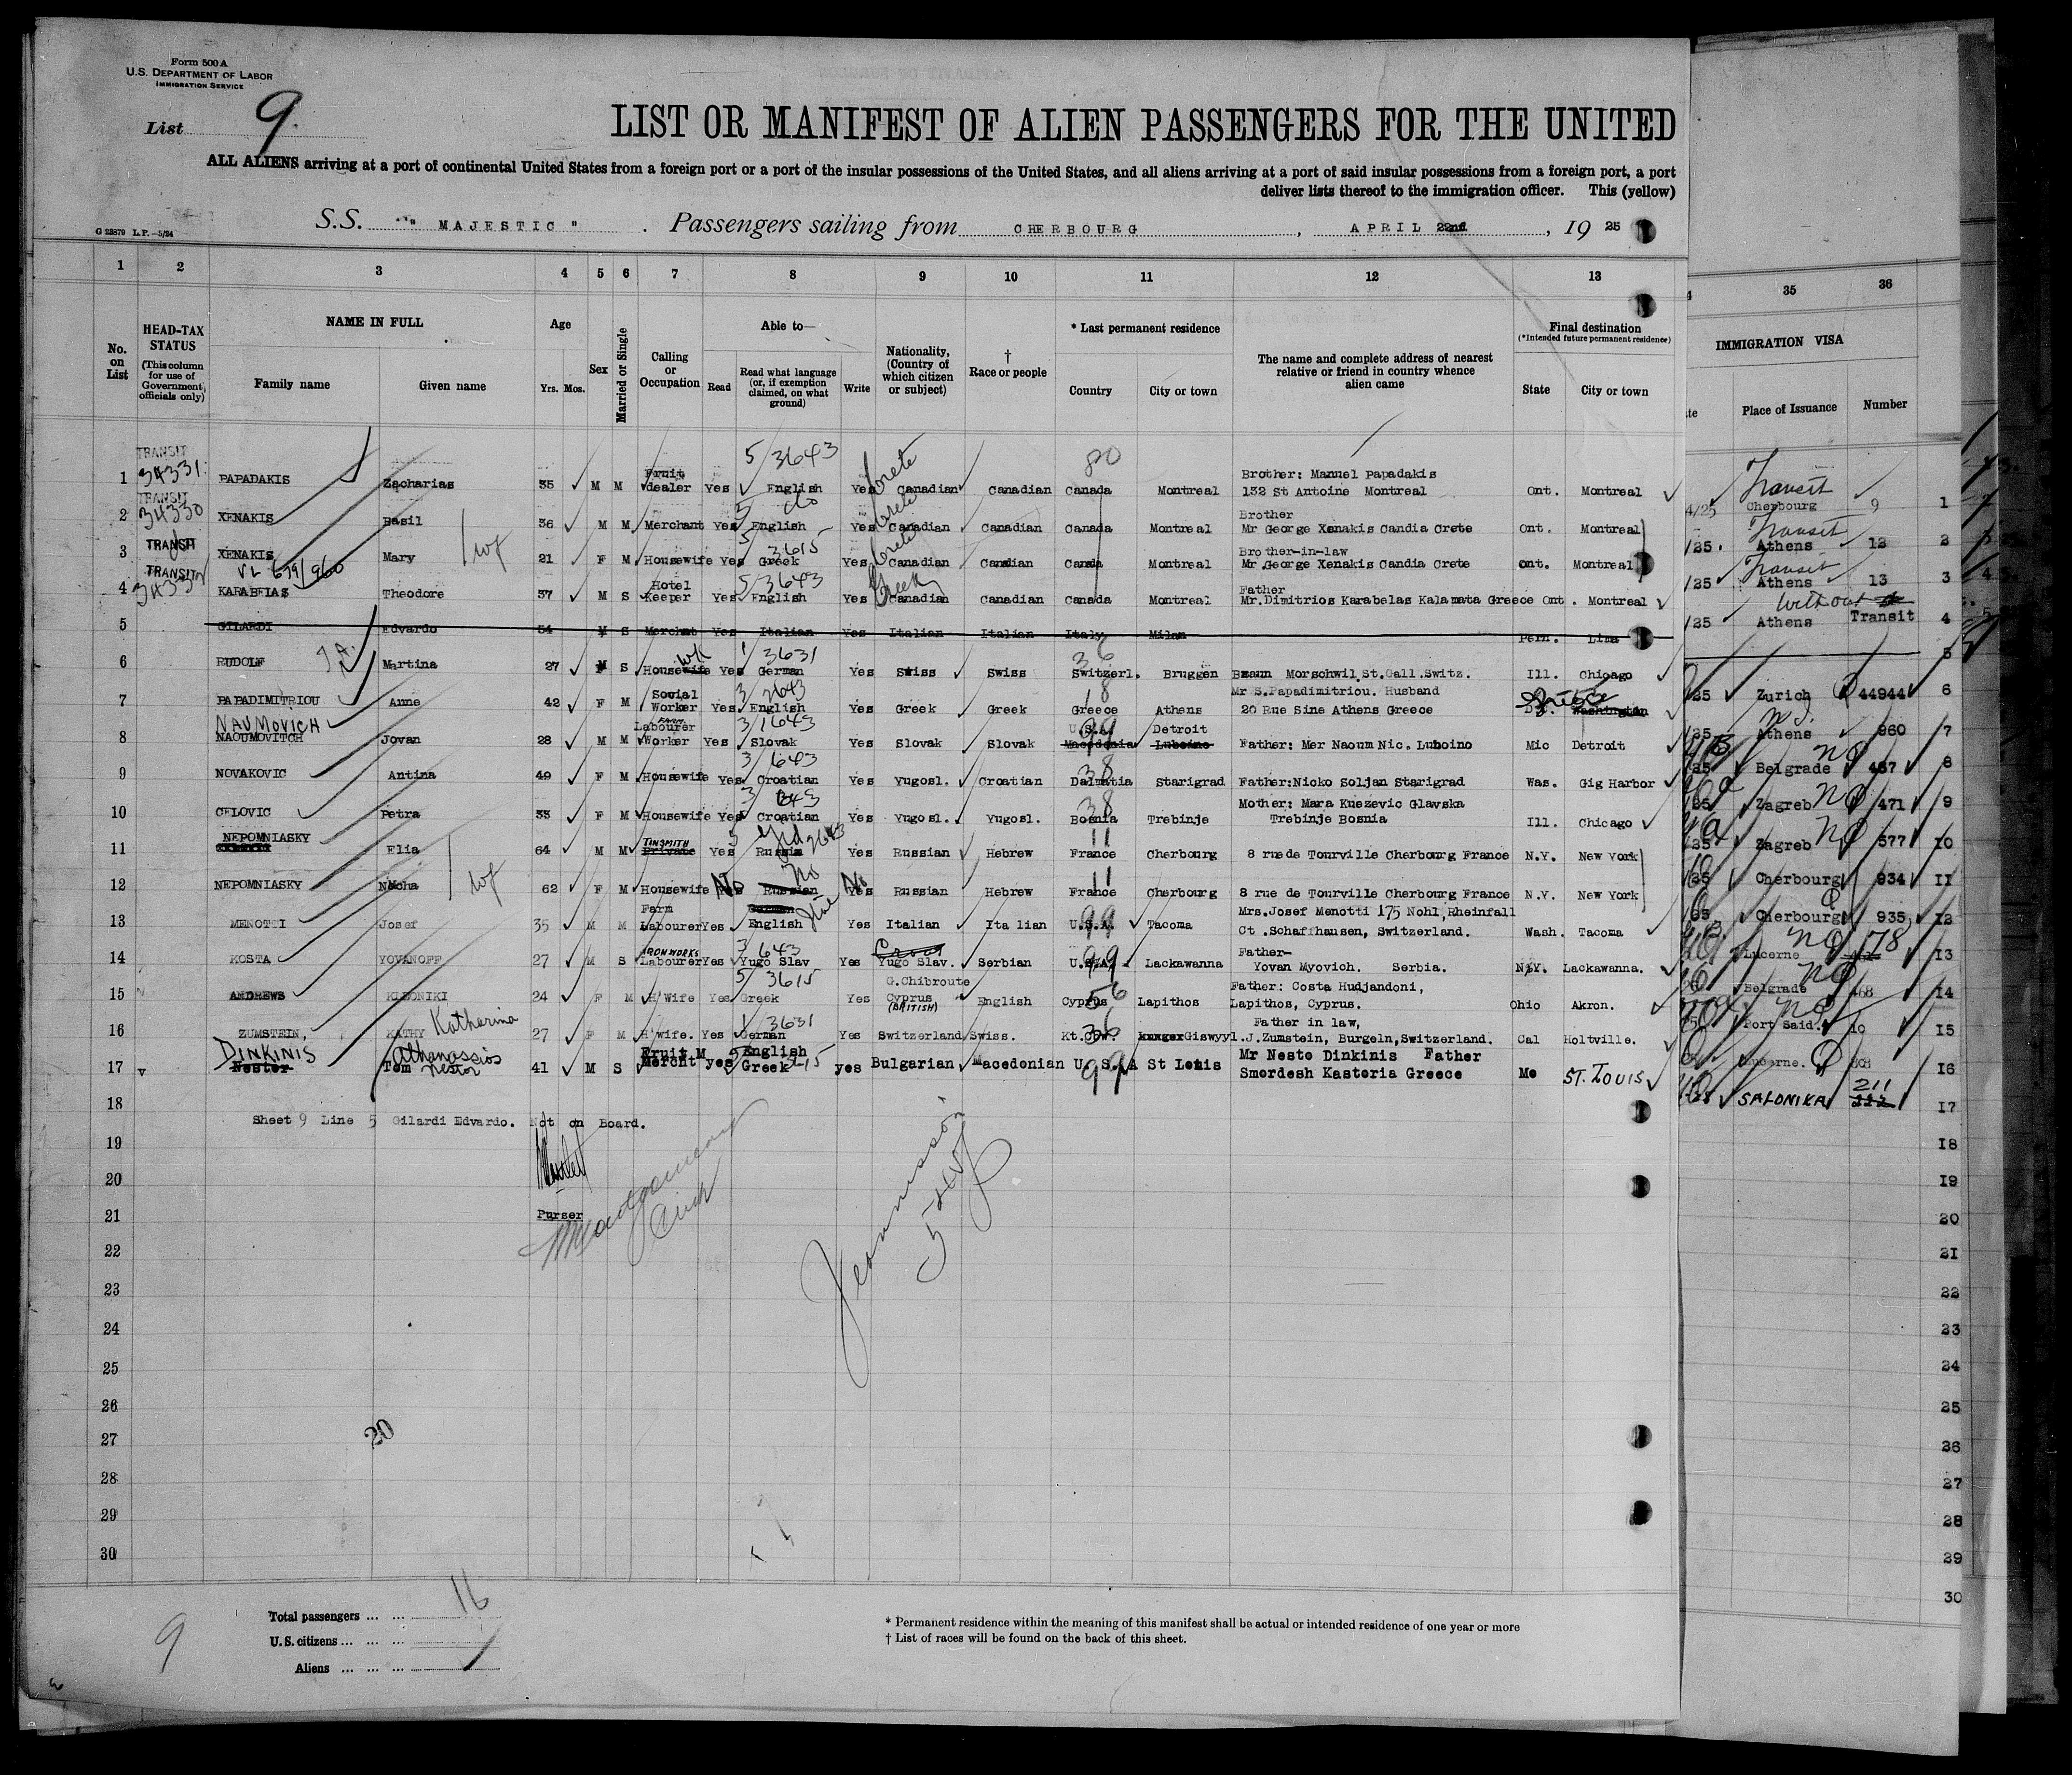 Form 500 A
U.S. DEPARTMENT OF LABOR
IMMIGRATION SERVICE
List 9
LIST OR MANIFEST OF ALIEN PASSENGERS FOR THE UNITED
ALL ALIENS arriving at a port of continental United States from a foreign port or a port of the insular possessions of the United States, and all aliens arriving at a port of said insular possessions from a foreign port, a port
deliver lists thereof to the immigration officer. This (yellow)
G 23879 L.P.—5/24
S.S. " MAJESTIC ". Passengers sailing from CHERBOURG, APRIL 22nd, 19 25
1 2 3 4 5 6 7 8 9 10 11 12 13 35 36
No. on List
HEAD-TAX STATUS (This column for use of Government officials only)
NAME IN FULL Family name Given name
Age Yrs. Mos.
Sex
Married or Single
Calling or Occupation
Able to— Read Read what language (or, if exemption claimed, on what ground) Write
Nationality, (Country of which citizen or subject)
† Race or people
* Last permanent residence Country City or town
The name and complete address of nearest relative or friend in country whence alien came
Final destination (*Intended future permanent residence) State City or town
IMMIGRATION VISA Place of Issuance Number
1 TRANSIT 34331 PAPADAKIS Zacharias 35 M M Fruit dealer Yes English 5/3643 Yes Crete Canadian Canadian Canada 80 Montreal Brother: Manuel Papadakis 132 St Antoine Montreal Ont. Montreal Transit Cherbourg 9 1
2 TRANSIT 34330 XENAKIS Basil 36 M M Merchant Yes English do Yes Crete Canadian Canadian Canada Montreal Brother Mr George Xenakis Candia Crete Ont. Montreal Transit Athens 12 2
3 TRANSIT XENAKIS Mary wf 21 F M Housewife Yes Greek 5/3615 Yes Crete Canadian Canadian Canada Montreal Brother-in-law Mr.George Xenakis Candia Crete Ont. Montreal Transit Athens 13 3
4 TRANSIT VL 699/960 KARABELAS Theodore 37 M S Hotel Keeper Yes English 5/3643 Yes Greek Canadian Canadian Canada Montreal Father Mr.Dimitrios Karabelas Kalamata Greece Ont. Montreal Athens without Transit 4
5 GILARDI Edvardo 54 M S Merchnt Yes Italian Yes Italian Italian Italy Milan Peru. Lima 5
6 RUDOLF Martina 27 S Housewife Yes German 1/3631 Yes Swiss Swiss Switzerl. 36 Bruggen Braun Morschwil St.Gall.Switz. Ill. Chicago Zurich 44944 6
7 PAPADIMITRIOU Anne 42 F M Social Worker Yes English 3/2643 Yes Greek Greek Greece Athens Mr S.Papadimitriou. Husband 20 Rue Sine Athens Greece Washington Athens 960 7
8 NAUMOVICH NAOUMOVITCH Jovan 28 M M Labourer FARM Worker Yes Slovak 3/1643 Yes Slovak Slovak U.S.A. Macedonia 99 Detroit Luboino Father: Mer Naoum Nic. Luboino Mic Detroit Belgrade 467 8
9 NOVAKOVIC Antina 49 F M Housewife Yes Croatian 3/643 Yes Yugosl. Croatian Dalmatia 38 Starigrad Father:Nicko Soljan Starigrad Was. Gig Harbor Zagreb 471 9
10 CELOVIC Petra 33 F M Housewife Yes Croatian Yes Yugosl. Yugosl. Bosnia 38 Trebinje Mother: Mara Kuezevic Glavska Trebinje Bosnia Ill. Chicago Zagreb 577 10
11 NEPOMNIASKY Elia 64 M M TINSMITH Private Yes Russin Yes Russian Hebrew France 11 Cherbourg 8 rue de Tourville Cherbourg France N.Y. New York Cherbourg 934 11
12 NEPOMNIASKY wf 62 F M Housewife No Russian No Yes No Russian Hebrew France 11 Cherbourg 8 rue de Tourville Cherbourg France N.Y. New York Cherbourg 935 12
13 MENOTTI Josef 35 M M Farm Labourer Yes English Yes Italian Ita lian U.S.A. 99 Tacoma Mrs.Josef Menotti 175 Nohl,Rheinfall Ct .Schaffhausen, Switzerland. Wash. Tacoma Lucerne 178 13
14 KOSTA YOVANOFF 27 M S IRON WORKS Labourer Yes Yugo Slav 3/643 Yes Yugo Slav. Serbian U.S.A. 99 Lackawanna Father— Yovan Myovich. Serbia. N.Y. Lackawanna. Belgrade 468 14
15 ANDREWS KLEONIKI 24 F M H'Wife Yes Greek 5/3615 Yes G.Chibroute Cyprus (BRITISH) English Cyprus 56 Lapithos Father: Costa Hudjandoni, Lapithos, Cyprus. Ohio Akron. Port Said. 10 15
16 ZUMSTEIN, KATHY Katherina 27 F M H'wife. Yes German 1/3631 Yes Switzerland Swiss. 36 Giswyyl. J.Zumstein, Burgeln,Switzerland. Father in law, Cal Holtville. Lucerne. 16
17 DINKINIS Nester Tom Athanassios Nestor 41 M S Fruit M Mercnt yes English Greek yes Bulgarian Macedonian U.S.A 99 St Louis Mr Nesto Dinkinis Father Smordesh Kastoria Greece Mo ST. LOUIS SALONIKA 211 222 17
18 Sheet 9 Line 5 Gilardi Edvardo. Not on Board.
19 18
20 19
21 Purser 20
22 21
23 22
24 23
25 24
26 25
27 20 26
28 27
29 28
30 29
30
9
Total passengers ... ... 16
U.S. citizens ... ... ...
Aliens ... ... ...
* Permanent residence within the meaning of this manifest shall be actual or intended residence of one year or more
† List of races will be found on the back of this sheet.